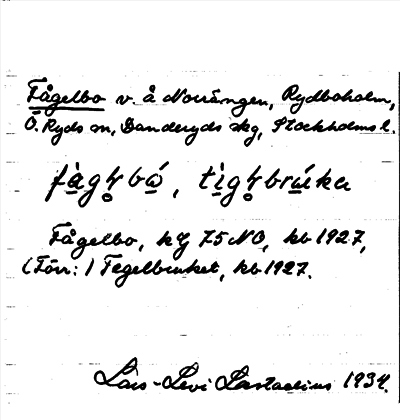 Fågelbo v. å Norrängen, Rydboholm,
Ö. Ryds sn, Danderyds skg, Stockholms l.
Fågelbo, k Ij 75 NO, kb 1927,
(Förr:) Tegelbruket, kb 1927.
Lars-Levi Læstadius 1934.